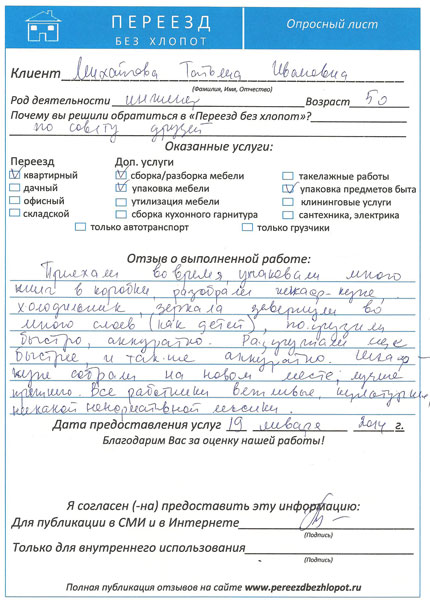 ПЕРЕЕЗД
БЕЗ ХЛОПОТ
Опросный лист
Клиент Михайлова Татьяна Ивановна
(Фамилия, Имя, Отчество)
Род деятельности инженер Возраст 50
Почему вы решили обратиться в «Переезд без хлопот»?
по совету друзей
Оказанные услуги:
Переезд Доп. услуги
квартирный сборка/разборка мебели такелажные работы
дачный упаковка мебели упаковка предметов быта
офисный утилизация мебели клининговые услуги
складской сборка кухонного гарнитура сантехника, электрика
только автотранспорт только грузчики
Отзыв о выполненной работе:
Приехали вовремя, упаковали много
книг в коробки, разобрали шкаф-купе,
холодильник, зеркала завернули во
много слоев (как детей), погрузили
быстро, аккуратно. Разгрузили еще
быстрее и так-же аккуратно. Шкаф-
купе собрали на новом месте, лучше
прежнего. Все работники вежливые, культурные,
никакой ненормативной лексики.
Дата предоставления услуг 19 января 2014 г.
Благодарим Вас за оценку нашей работы!
Я согласен (-на) предоставить эту информацию:
Для публикации в СМИ и в Интернете
(Подпись)
Только для внутреннего использования
(Подпись)
Полная публикация отзывов на сайте www.pereezdbezhlopot.ru